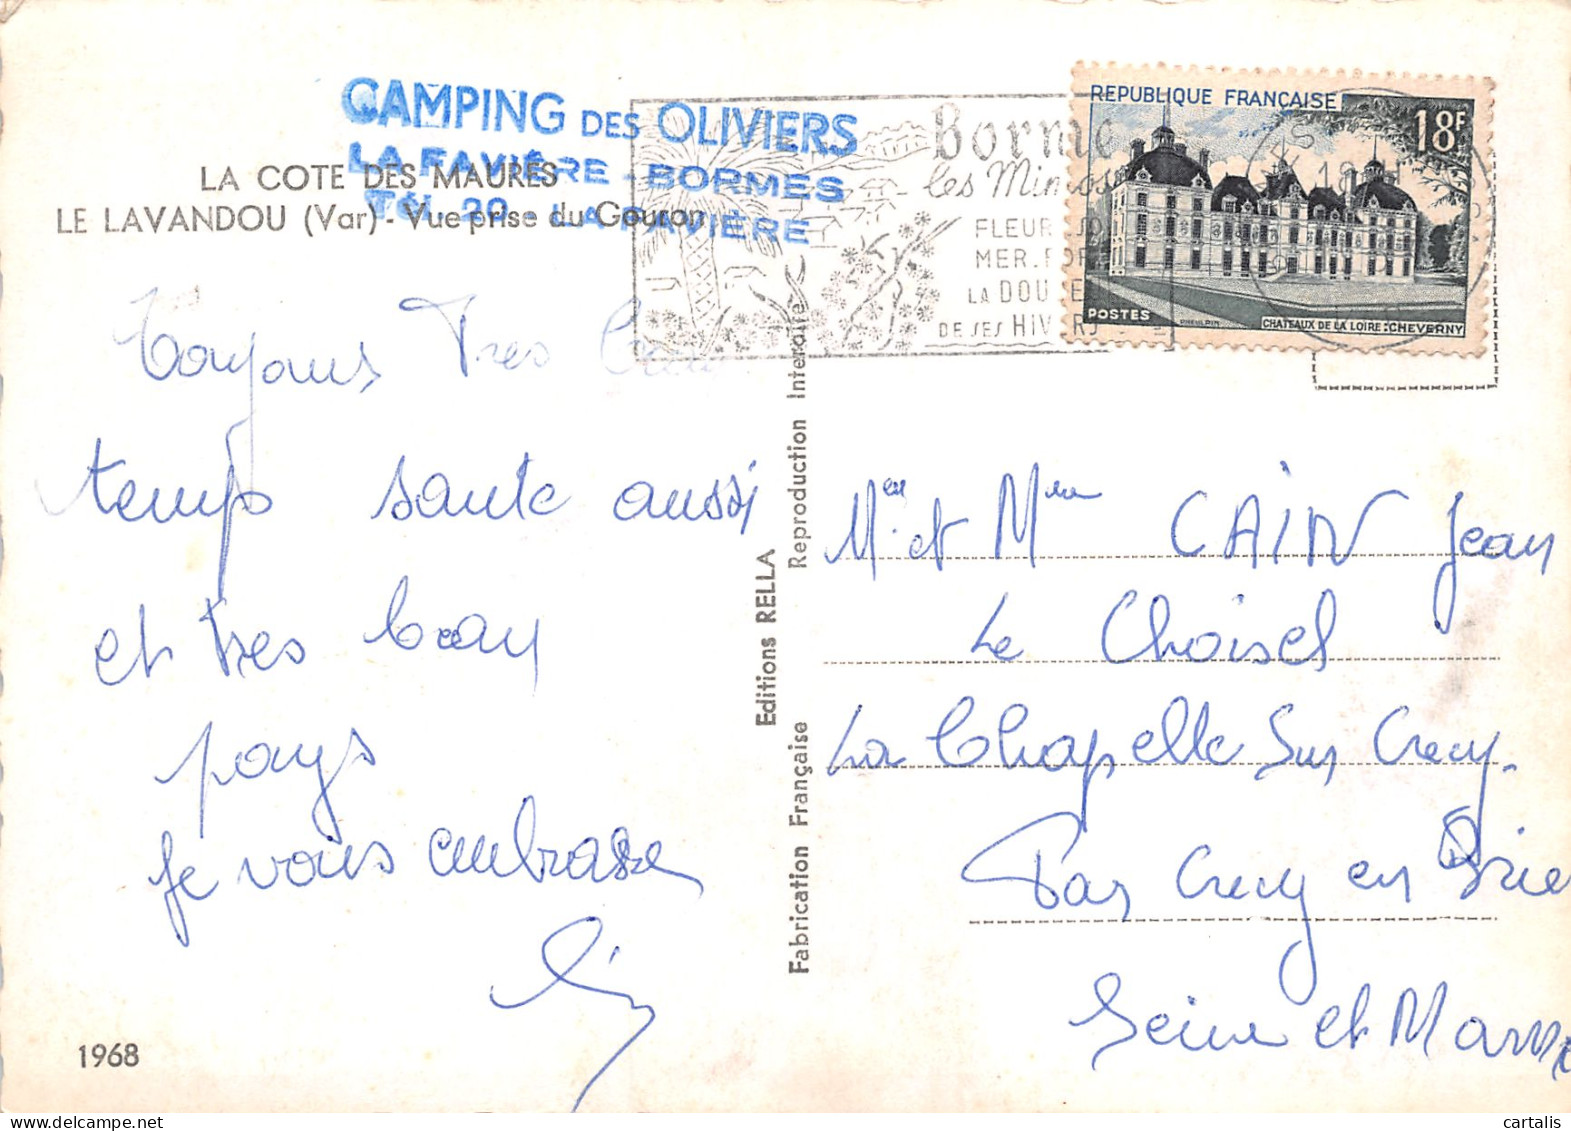 CAMPING DES OLIVIERS
LA FAVIÈRE - BORMES
Tél. 29 - LA FAVIÈRE
LA COTE DES MAURES
LE LAVANDOU (Var) - Vue prise du Gouron
Borme
les Mimosas
FLEUR
MER. FOR
LA DOU E
DE SES HIVERS
REPUBLIQUE FRANÇAISE
18F
POSTES
PHEULPIN
CHATEAUX DE LA LOIRE: CHEVERNY
Toujours Tres beau
temps sante aussi
et tres beau
pays
Je vous embrasse
1968
Editions RELLA
Fabrication Française
Reproduction Interdite
Mr et Mme CAIN Jean
Le Choisel
La Chapelle Sur Crecy.
Par Crecy en Brie
Seine et Marne
cartalis
delcampe.net